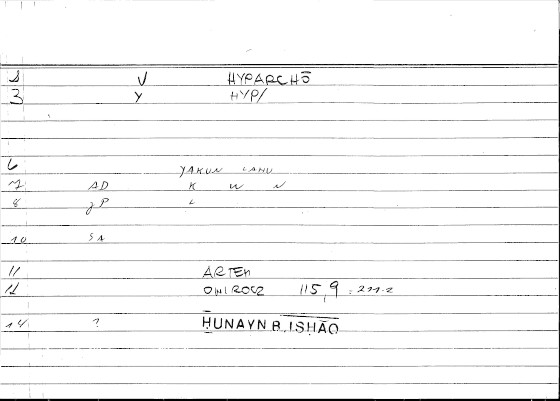 V HYPARCHŌ
3 Y HYP/
6 YAKUN LAHU
7 AD K W N
8 gP L
10 SA
11 ARTEM
12 ONIROC2 115,9 : 211-2
14 ? ḤUNAYN B. ISḤĀQ